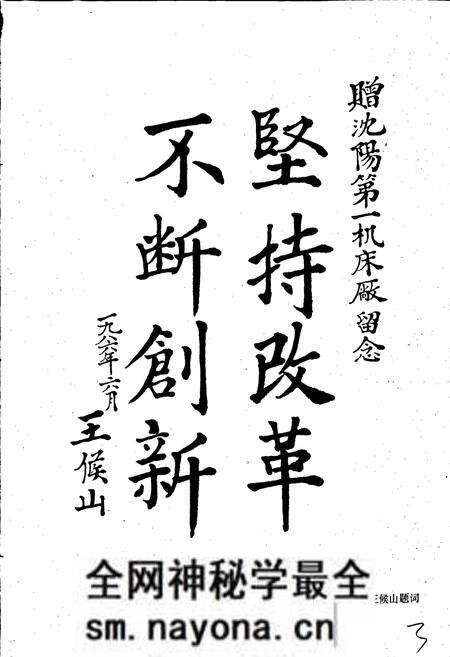 贈沈陽第一机床廠留念
堅持改革
不断創新
一九八六年六月
王候山
王候山题词
全网神秘学最全
sm.nayona.cn
3